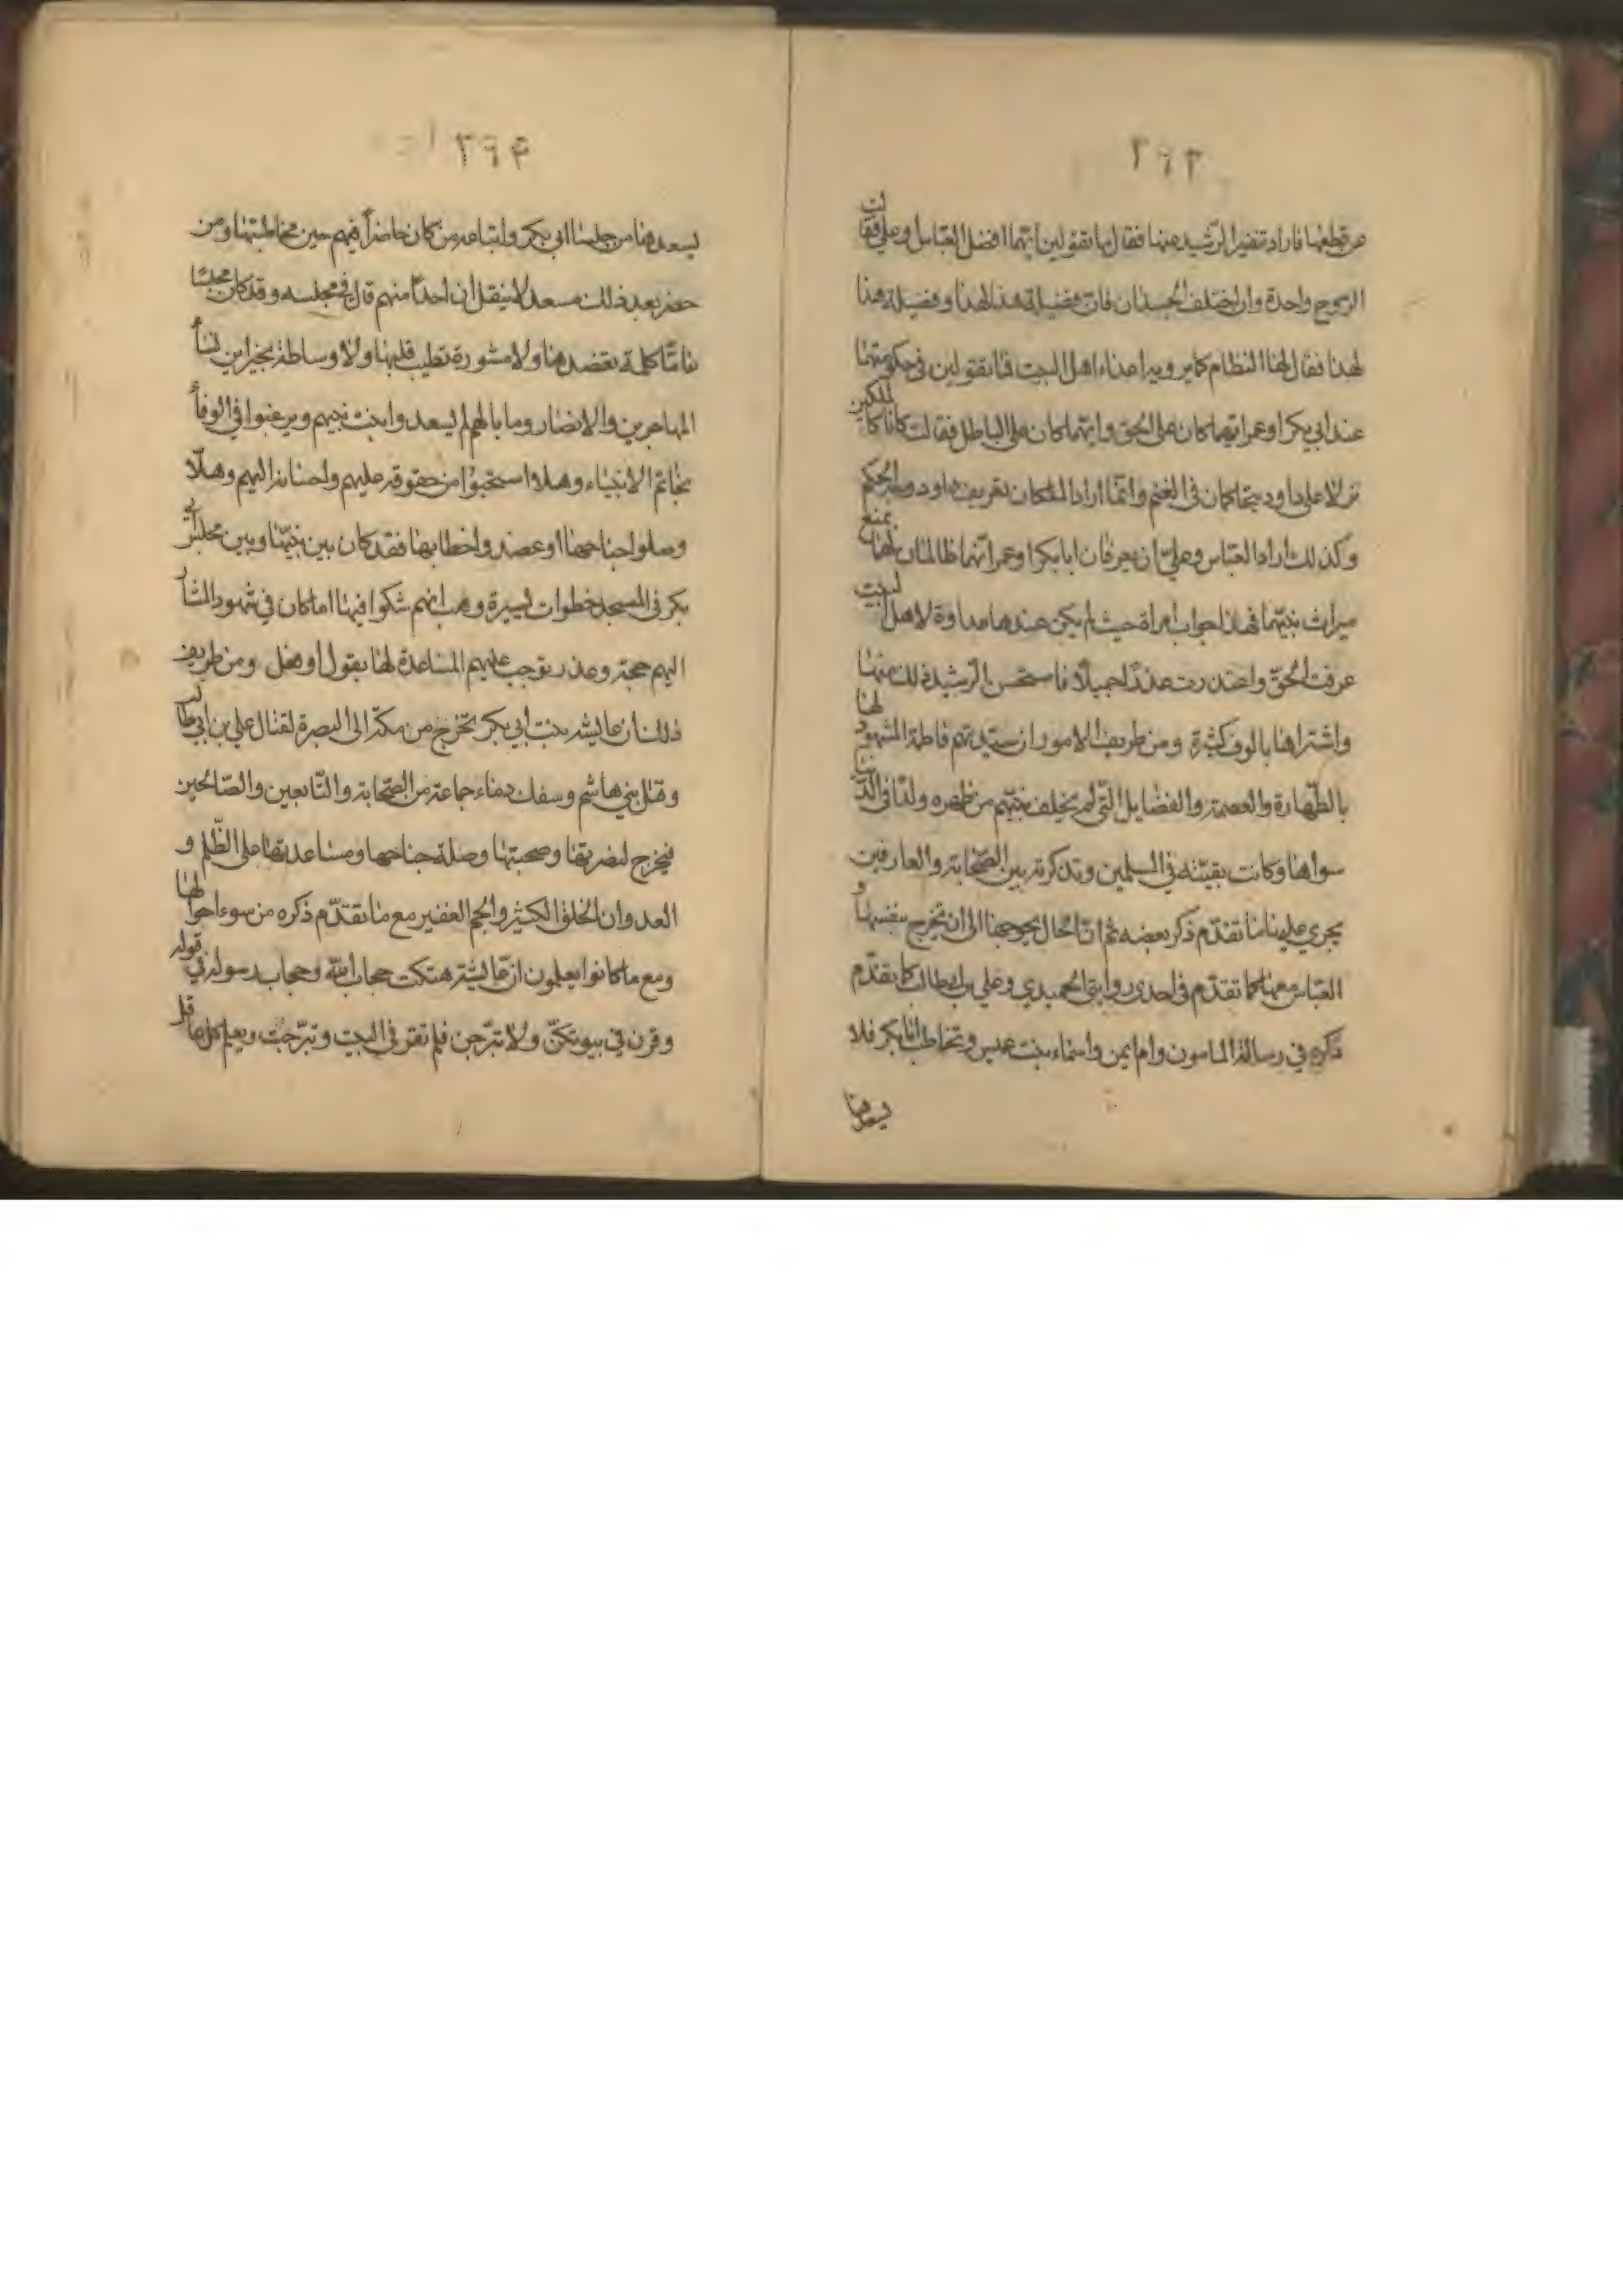 ٣٦٣
عن قطعها فاراد تنفير الرشيد عنها فقال لها ما تقولين ايهما افضل العباس او علي فقالت
الروح واحدة وان اختلف الجسدان فان فضيلة هذا لهذا وفضيلة هذا
لهذا فقال لها النظام كابر وبراعداء اهل البيت فما تقولين في حكومتهما
عند ابي بكر او عمر ايهما كان على الحق وايهما كان على الباطل فقالت كانا كالملكين
نزلا على داود يتحاكمان في الغنم وانما اراد الملكان تعريف داود وجه الحكم
وكذلك اراد العباس وعلي ان يعرفان ابا بكر او عمر انهما ظالمان لهما بمنع
ميراث نبيهما فهذا جواب امراة حيث لم يكن عندها عداوة لاهل البيت
عرفت الحق واعتذرت عذرا جميلا فاستحسن الرشيد ذلك منها
واشتراها بالوف كثيرة ومن طريف الامور ان سيدتهم فاطمة المشهود لها
بالطهارة والعصمة والفضايل التي لم يخلف نبيهم من ظهره ولدا في الدنيا
سواها وكانت بقيته في المسلمين وتذكرته بين الصحابة والعارفين
يجري عليها ما تقدم ذكر بعضه ثم ان الحال يحوجها الى ان تخرج بنفسها و
العباس معها كما تقدم في احدى روايتي الحميدي وعلي بن ابيطالب كما تقدم
ذكره في رسالة المامون وام ايمن واسماء بنت عميس وتخاطب ابا بكر فلا
يسعدها
٣٦٤
يسعدها من جلساء ابي بكر واتباعه من كان حاضرا فيهم حين مخاطبتها ومن
حضر بعد ذلك مسعد لا ينقل ان احدا منهم قال في مجلسه وقد كان مجلسا
عاما كلمة تعضدها ولا مشورة تطيب قلبها ولا وساطة بخير اين نساء
المهاجرين والانصار وما بالهم لم يسعدوا بنت نبيهم ويرغبوا في الوفاء
بخاتم الانبياء وهلا استحيوا من حقوقه عليهم واحسانه اليهم وهلا
وصلوا جناحها او عضدوا خطابها فقد كان بين بيتها وبين مجلس ابي
بكر في المسجد خطوات يسيرة وهب انهم شكوا فيها اما كان في شهود الشا
اليهم حجة وعذر يوجب عليهم المساعدة لها بقول او فعل ومن طريف
ذلك ان عايشة بنت ابي بكر تخرج من مكة الى البصرة لقتال علي بن ابي طالب
وقتل بني هاشم وسفك دماء جماعة من الصحابة والتابعين والصالحين
فيخرج لنصرتها وصحبتها وصلة جناحها ومساعدتها على الظلم و
العدوان الخلق الكثير والجم الغفير مع ما تقدم ذكره من سوء احوالها
ومع ما كانوا يعلمون ان عايشة هتكت حجاب الله وحجاب رسوله في قوله
وقرن في بيوتكن ولا تبرجن فلم تقر في البيت وتبرجت ويعلم كل عاقل